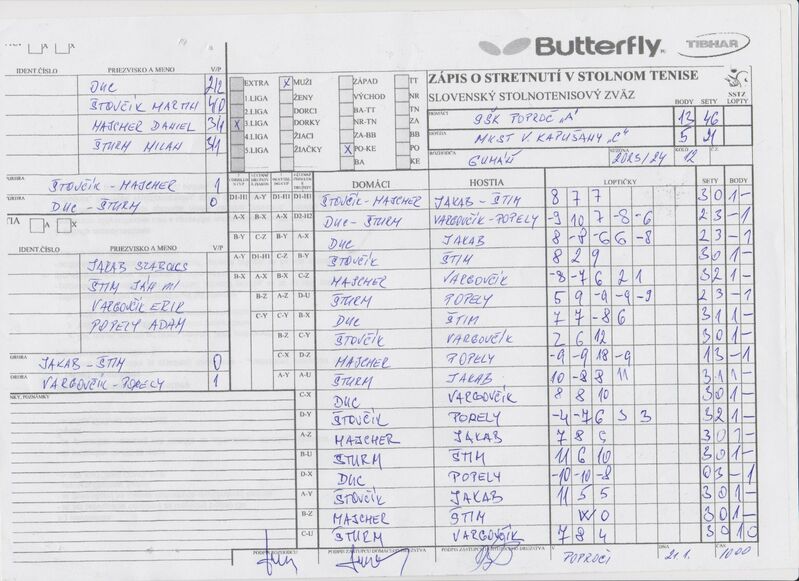 Butterfly TIBHAR
ZÁPIS O STRETNUTÍ V STOLNOM TENISE
SLOVENSKÝ STOLNOTENISOVÝ ZVÄZ
SSTZ
IDENT.ČÍSLO PRIEZVISKO A MENO V/P
DUC 2/2
ŠTOVČÍK MARTIN 4/0
MAJCHER DANIEL 3/1
ŠTURM MILAN 3/1
ŠTOVČÍK - MAJCHER 1
DUC - ŠTURM 0
A X
IDENT.ČÍSLO PRIEZVISKO A MENO V/P
JAKAB SZABOLCS
ŠTIM JÁN ml
VARGOVČÍK ERIK
POPELY ADAM
JAKAB - ŠTIM 0
VARGOVČÍK - POPELY 1
POZNÁMKY
EXTRA X MUŽI ZÁPAD TT
1.LIGA ŽENY VÝCHOD NR
2.LIGA DORCI BA-TT TN
X 3.LIGA DORKY NR-TN ZA
4.LIGA ŽIACI ZA-BB BB
5.LIGA ŽIAČKY X PO-KE PO
BA KE
DOMÁCI BODY SETY LOPTY
GŠK POPROČ „A" 13 46
HOSTIA MKST V. KAPUŠANY „C" 5 21
ROZHODCA GUMAŇ SEZÓNA 2023/24 KOLO 12
DOMÁCI HOSTIA LOPTIČKY SETY BODY
D1-H1 A-Y D1-H1 D1-H1 ŠTOVČÍK-MAJCHER JAKAB - ŠTIM 8 7 7 3 0 1 -
A-X B-X A-X D2-H2 DUC - ŠTURM VARGOVČÍK-POPELY -9 10 7 -8 -6 2 3 - 1
B-Y C-Z B-Y A-X DUC JAKAB 8 -8 -6 6 -8 2 3 - 1
A-Y D1-H1 C-Z B-Y ŠTOVČÍK ŠTIM 8 2 9 3 0 1 -
B-X A-X B-X C-Z MAJCHER VARGOVČÍK -8 -7 6 2 1 3 2 1 -
B-Z A-Z D-U ŠTURM POPELY 5 9 -9 -9 -9 2 3 - 1
C-Y C-Y B-X DUC ŠTIM 7 7 -8 6 3 1 1 -
B-Z C-Y ŠTOVČÍK VARGOVČÍK 2 6 12 3 0 1 -
C-X D-Z MAJCHER POPELY -9 -9 18 -9 1 3 - 1
A-Y A-U ŠTURM JAKAB 10 -8 8 11 3 1 1 -
C-X DUC VARGOVČÍK 8 8 10 3 0 1 -
D-Y ŠTOVČÍK POPELY -4 -7 6 3 3 3 2 1 -
A-Z MAJCHER JAKAB 7 8 3 0 1 -
B-U ŠTURM ŠTIM 11 6 10 3 0 1 -
D-X DUC POPELY -10 -10 -8 0 3 - 1
A-Y ŠTOVČÍK JAKAB 11 5 5 3 0 1 -
B-Z MAJCHER ŠTIM W/O 3 0 1 -
C-U ŠTURM VARGOVČÍK 7 8 4 3 0 1 0
PODPIS ROZHODCU PODPIS ZÁSTUPCU DOMÁCEHO DRUŽSTVA PODPIS ZÁSTUPCU HOSŤUJÚCEHO DRUŽSTVA V POPROČI DŇA 21.1. ČAS 1000